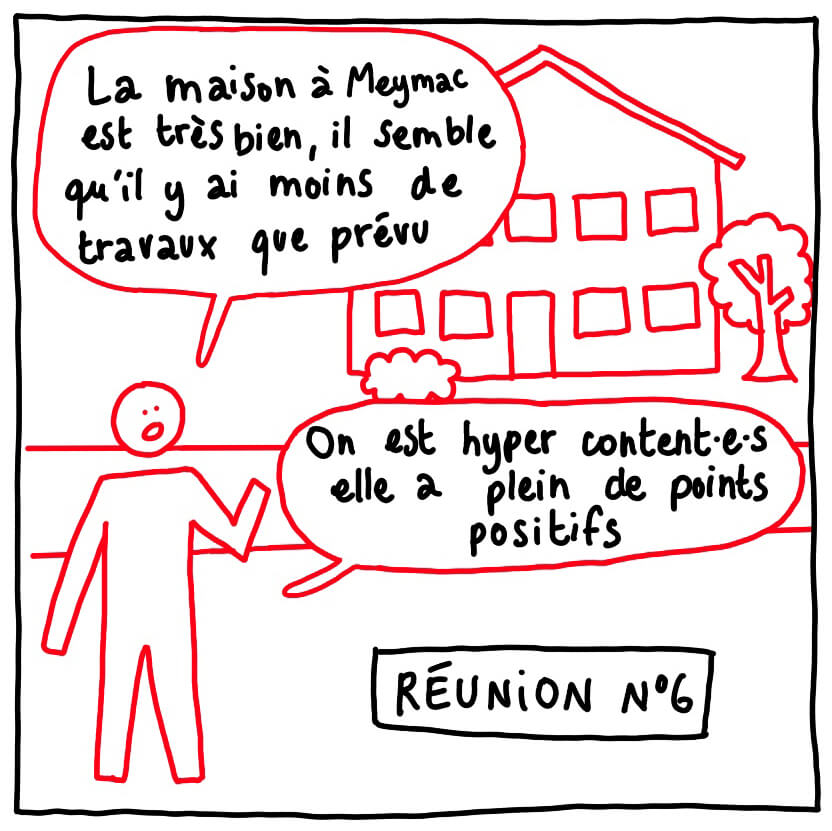 La maison à Meymac
est très bien, il semble
qu'il y ai moins de
travaux que prévu
On est hyper content·e·s
elle a plein de points
positifs
RÉUNiON N°6